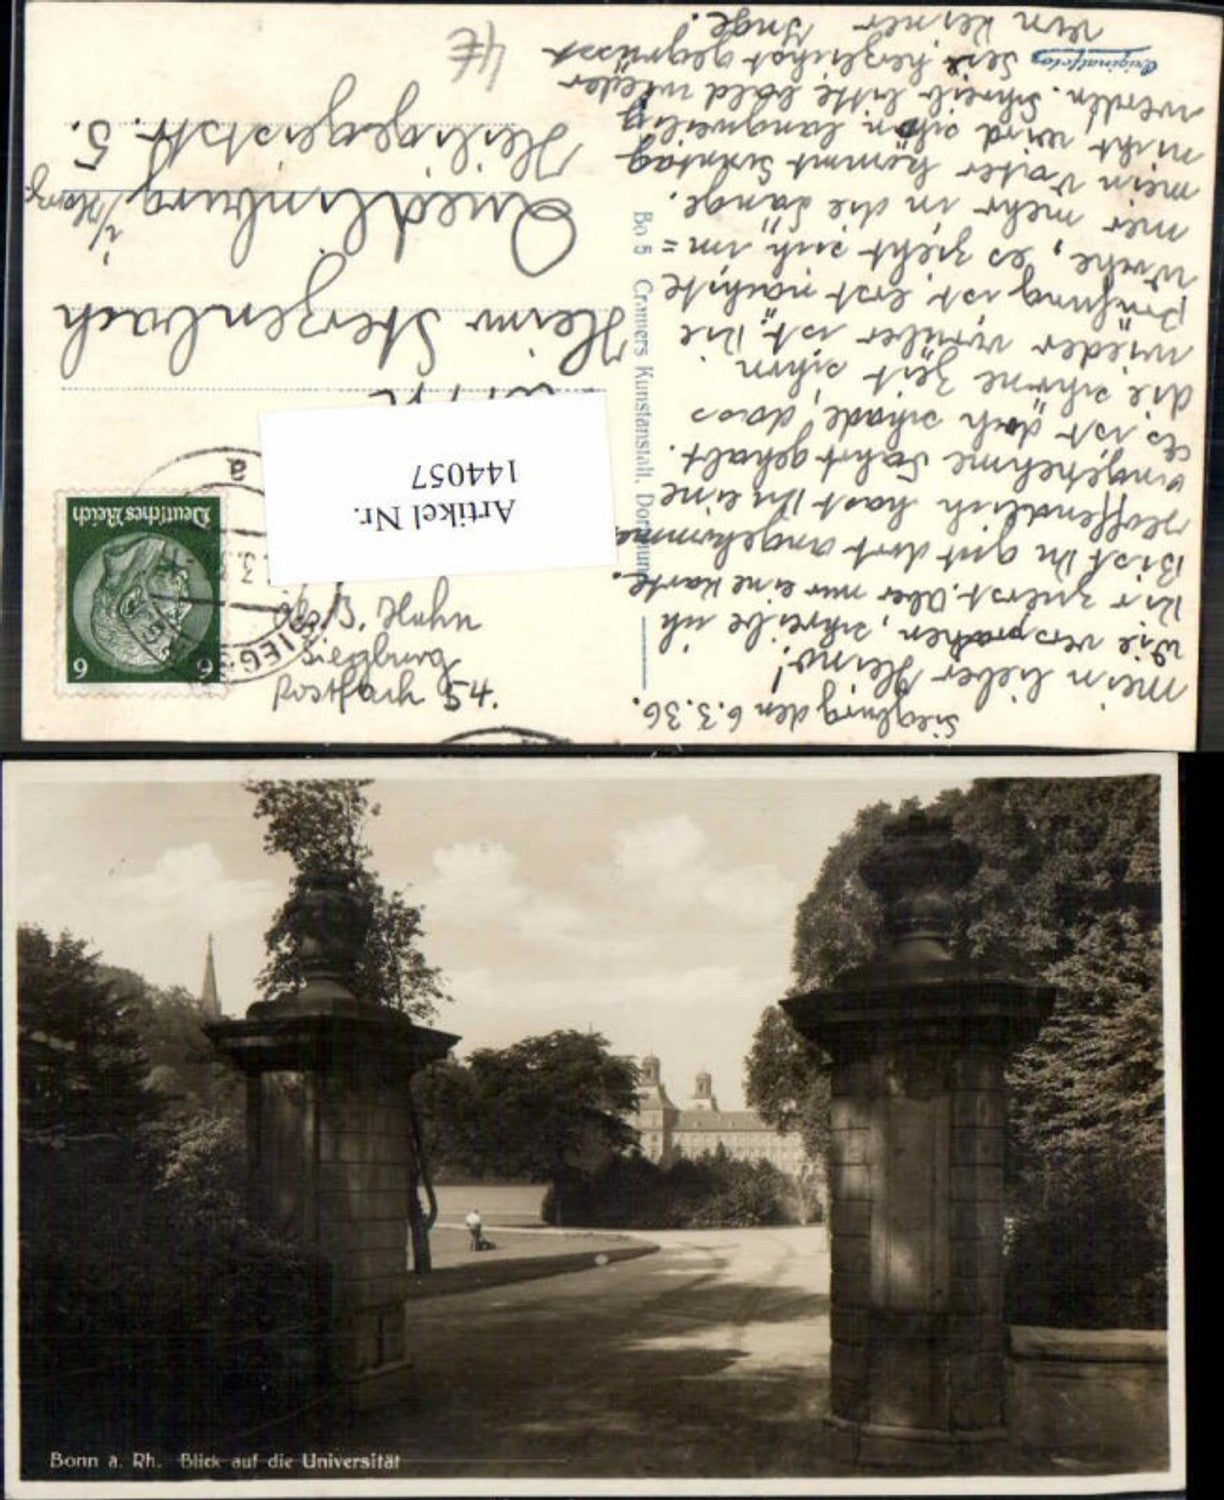 Siegburg den 6.3.36.
Mein lieber Heino!
Wie versprochen, schreibe ich
Dir zuerst. Aber nur eine Karte.
Bist Du gut dort angekommen
Hoffendlich hast Du eine
angenehme Fahrt gehabt.
Es ist doch schade, dass
die schöne Zeit schon
wieder vorüber ist. Die
Prüfung ist erst nächste
Woche, es zieht sich im=
mer mehr in die Länge.
mein Vater kommt Sonntag
nicht wird schon langweilig
werden. Schreib bitte bald wieder
Sei herzlichst gegrüsst
von Deiner Inge!
Originalfoto
Bo 5 Cramers Kunstanstalt, Dortmund
Hahn
Siegburg
Postfach 54.
Deutsches Reich
6 6
SIEG
a
3.
Artikel Nr.
144057
Heino Sterzenbach
Quedlinburg i/Harz
Heiligegeiststr. 5.
4€
Bonn a. Rh. Blick auf die Universität